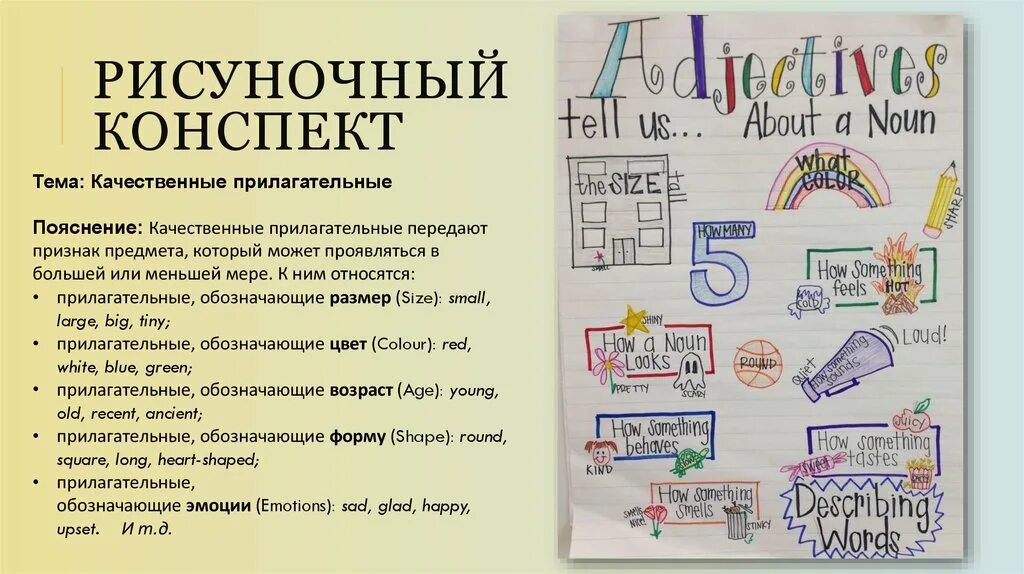 РИСУНОЧНЫЙ
КОНСПЕКТ
Тема: Качественные прилагательные
Пояснение: Качественные прилагательные передают
признак предмета, который может проявляться в
большей или меньшей мере. К ним относятся:
• прилагательные, обозначающие размер (Size): small,
large, big, tiny;
• прилагательные, обозначающие цвет (Colour): red,
white, blue, green;
• прилагательные, обозначающие возраст (Age): young,
old, recent, ancient;
• прилагательные, обозначающие форму (Shape): round,
square, long, heart-shaped;
• прилагательные,
обозначающие эмоции (Emotions): sad, glad, happy,
upset. И т.д.
Adjectives
tell us... About a Noun
the SIZE
tall
small
what
COLOR
SHARP
HOW MANY
5
How something
feels
HOT
COLD
SHINY
How a Noun
LOOKS
PRETTY
SCARY
ROUND
QUIET
How something
sounds
LOUD!
How something
behaves
KIND
SLOW
JUICY
How something
tastes
SWEET
SALTY
How something
smells
SMELLS
NICE!
STINKY
Describing
Words